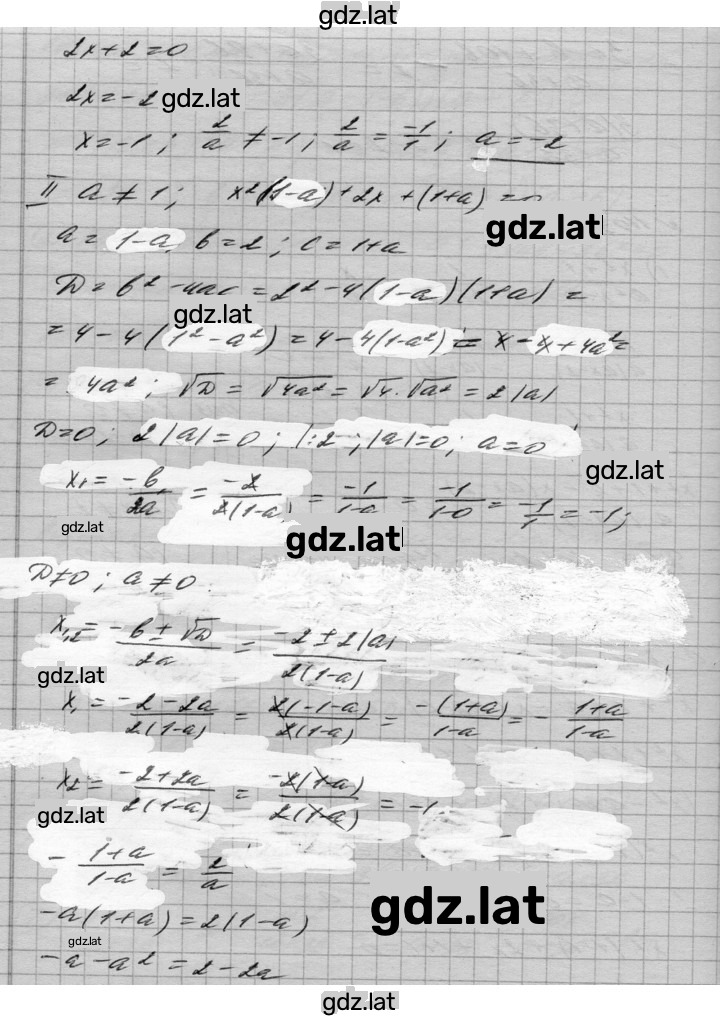 gdz.lat
2x+2=0
2x=-2 gdz.lat
x=-1; 2/a ≠ -1; 2/a = -1/1; a=-2
II a≠1; x²(1-a)+2x+(1+a)=0
gdz.lat
a=1-a b=2; c=1+a
D=b²-4ac=2²-4(1-a)(1+a)=
gdz.lat
=4-4(1²-a²)=4-4(1-a²)=4-4+4a²=
=4a²; √D=√4a²=√4·√a²=2|a|
D=0; 2|a|=0; |:2; |a|=0; a=0
gdz.lat
x₁=-b/2a=-2/2(1-a)=-1/1-a=-1/1-0=-1/1=-1;
gdz.lat
gdz.lat
D≠0; a≠0
x₁,₂=-b±√D/2a=-2±2|a|/2(1-a)
gdz.lat
x₁=-2-2a/2(1-a)=2(-1-a)/2(1-a)=-(1+a)/1-a=-1+a/1-a
x₂=-2+2a/2(1-a)=-2(1-a)/2(1-a)=-1
gdz.lat
-1+a/1-a=2/a
gdz.lat
-a(1+a)=2(1-a)
gdz.lat
-a-a²=2-2a
gdz.lat